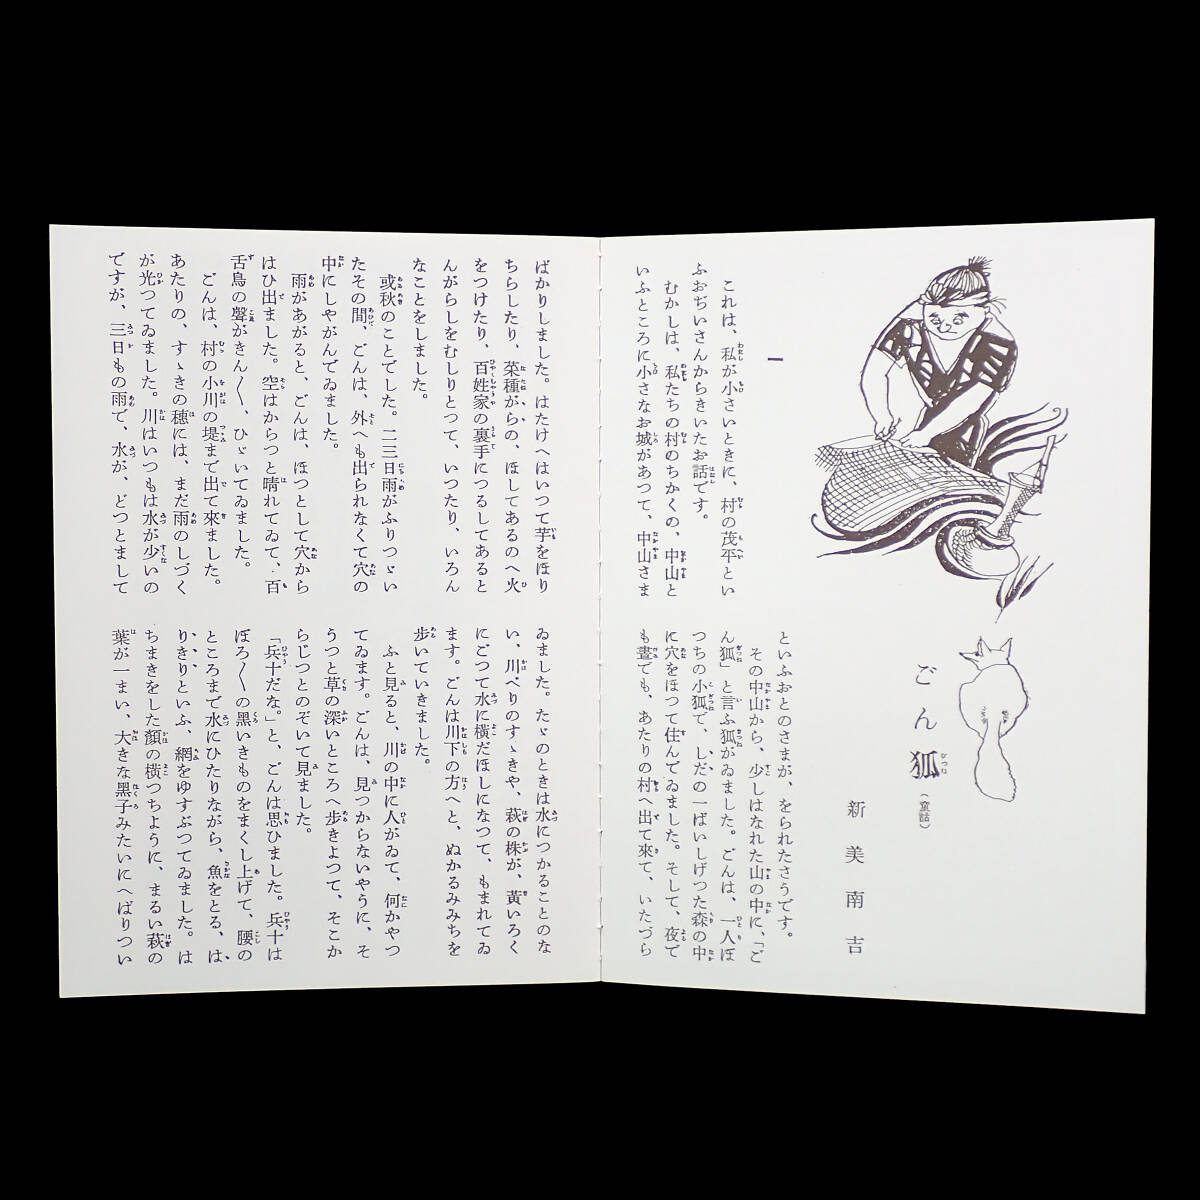 ごん狐（童話）
新美南吉
一
これは、私が小さいときに、村の茂平とい
ふおぢいさんからきいたお話です。
むかしは、私たちの村のちかくの、中山と
いふところに小さなお城があつて、中山さま
といふおとのさまが、をられたさうです。
その中山から、少しはなれた山の中に、「ご
ん狐」と言ふ狐がゐました。ごんは、一人ぼ
つちの小狐で、しだの一ぱいしげつた森の中
に穴をほつて住んでゐました。そして、夜で
も晝でも、あたりの村へ出て來て、いたづら
ばかりしました。はたけへはいつて芋をほり
ちらしたり、菜種がらの、ほしてあるのへ火
をつけたり、百姓家の裏手につるしてあると
んがらしをむしりとつて、いつたり、いろん
なことをしました。
或秋のことでした。二三日雨がふりつゞい
たその間、ごんは、外へも出られなくて穴の
中にしやがんでゐました。
雨があがると、ごんは、ほつとして穴から
はひ出ました。空はからつと晴れてゐて、百
舌鳥の聲がきん〳〵、ひゞいてゐました。
ごんは、村の小川の堤まで出て來ました。
あたりの、すゝきの穗には、まだ雨のしづく
が光つてゐました。川はいつもは水が少いの
ですが、三日もの雨で、水が、どつとまして
ゐました。たゞのときは水につかることのな
い、川べりのすゝきや、萩の株が、黃いろく
にごつて水に橫だほしになつて、もまれてゐ
ます。ごんは川下の方へと、ぬかるみみちを
歩いていきました。
ふと見ると、川の中に人がゐて、何かやつ
てゐます。ごんは、見つからないやうに、そ
うつと草の深いところへ歩きよつて、そこか
らじつとのぞいて見ました。
「兵十だな。」と、ごんは思ひました。兵十は
ぼろ〳〵の黑いきものをまくし上げて、腰の
ところまで水にひたりながら、魚をとる、は
りきりといふ、網をゆすぶつてゐました。は
ちまきをした顏の橫つちように、まるい萩の
葉が一まい、大きな黑子みたいにへばりつい